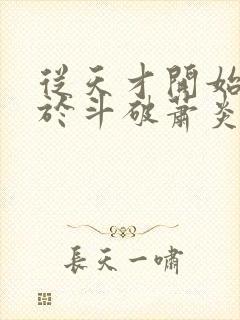 從天才開始
於斗破蕭炎
長天一嘯